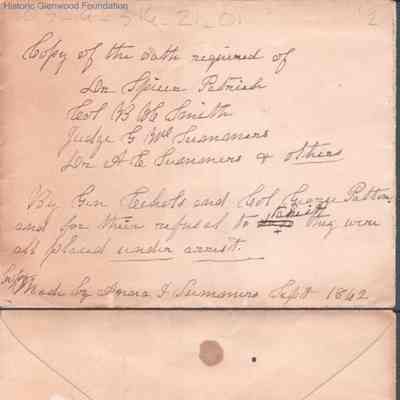 Historic Glenwood Foundation
Copy of the oath required of
Dr Spicer Patrick
Col B H Smith
Judge G W Summers
Dr A E Summers & others
By Gen Echols and Col George Patton
and for their refusal to take it they were
all placed under arrest.
Copy
Made by Summers Sept 1862